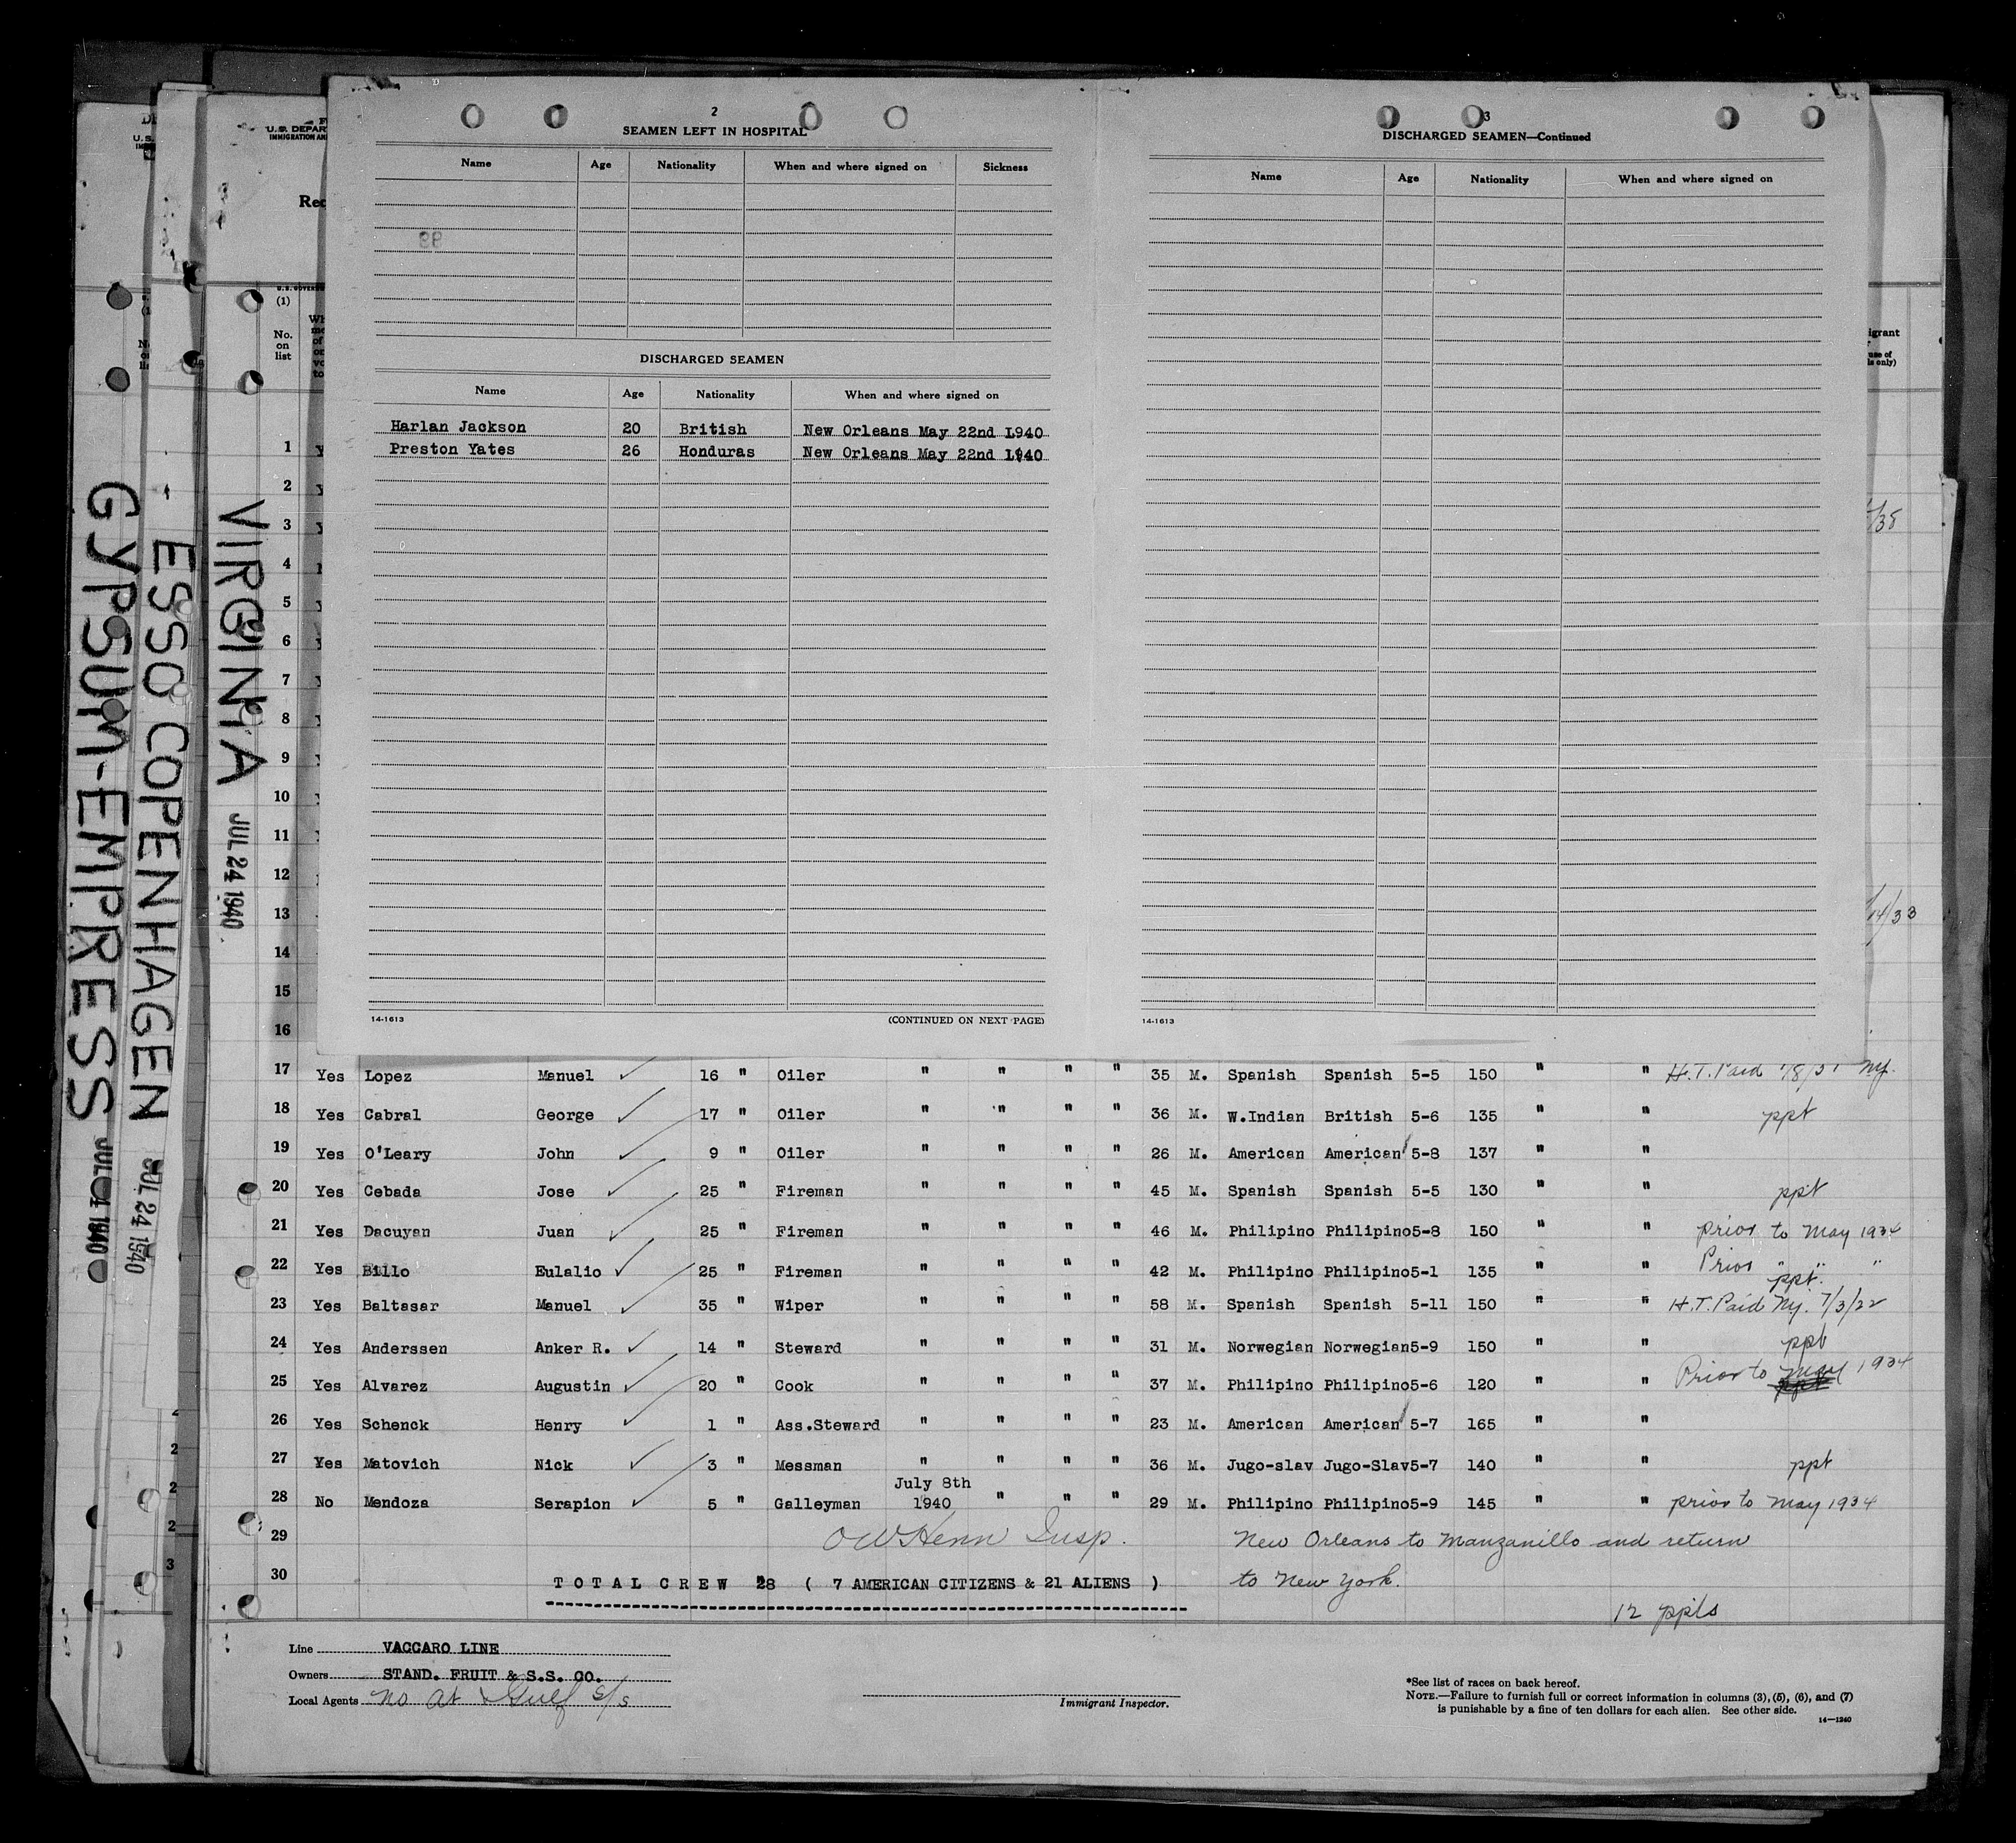 GYPSUM-EMPRESS
ESSO COPENHAGEN JUL 24 1940
VIRGINIA JUL 24 1940
U.S. DEPAR
IMMIGRATION AN
(1)
No.
on
list
2
SEAMEN LEFT IN HOSPITAL
Name Age Nationality When and where signed on Sickness
DISCHARGED SEAMEN
Name Age Nationality When and where signed on
Harlan Jackson 20 British New Orleans May 22nd 1940
Preston Yates 26 Honduras New Orleans May 22nd 1940
14-1613 (CONTINUED ON NEXT PAGE)
3
DISCHARGED SEAMEN—Continued
Name Age Nationality When and where signed on
14-1613
igrant
use of
is only)
/35
14/33
1
2
3
4
5
6
7
8
9
10
11
12
13
14
15
16
17 Yes Lopez Manuel 16 " Oiler " " " " 35 M. Spanish Spanish 5-5 150 " " H.T. Paid Ny.
18 Yes Cabral George 17 " Oiler " " " " 36 M. W.Indian British 5-6 135 " " ppt
19 Yes O'Leary John 9 " Oiler " " " " 26 M. American American 5-8 137 " "
20 Yes Cebada Jose 25 " Fireman " " " " 45 M. Spanish Spanish 5-5 130 " " ppt
21 Yes Dacuyan Juan 25 " Fireman " " " " 46 M. Philipino Philipino 5-8 150 " " prior to May 1934
22 Yes Billo Eulalio 25 " Fireman " " " " 42 M. Philipino Philipino 5-1 135 " " Prior " " "
ppt.
23 Yes Baltasar Manuel 35 " Wiper " " " " 58 M. Spanish Spanish 5-11 150 " " H.T. Paid Ny. 7/3/22
24 Yes Anderssen Anker R. 14 " Steward " " " " 31 M. Norwegian Norwegian 5-9 150 " " ppt
25 Yes Alvarez Augustin 20 " Cook " " " " 37 M. Philipino Philipino 5-6 120 " " Prior to May 1934
26 Yes Schenck Henry 1 " Ass.Steward " " " " 23 M. American American 5-7 165 " "
27 Yes Matovich Nick 3 " Messman " " " " 36 M. Jugo-slav Jugo-Slav 5-7 140 " " ppt
28 No Mendoza Serapion 5 " Galleyman July 8th 1940 " " " 29 M. Philipino Philipino 5-9 145 " " prior to May 1934
29 OW Henn Insp. New Orleans to Manzanillo and return
30 TOTAL CREW 28 ( 7 AMERICAN CITIZENS & 21 ALIENS ) to New York.
12 ppts
Line VACCARO LINE
Owners STAND. FRUIT & S.S. CO.
Local Agents no at Gulf S/S
Immigrant Inspector.
*See list of races on back hereof.
NOTE.—Failure to furnish full or correct information in columns (3), (5), (6), and (7)
is punishable by a fine of ten dollars for each alien. See other side.
14—1240